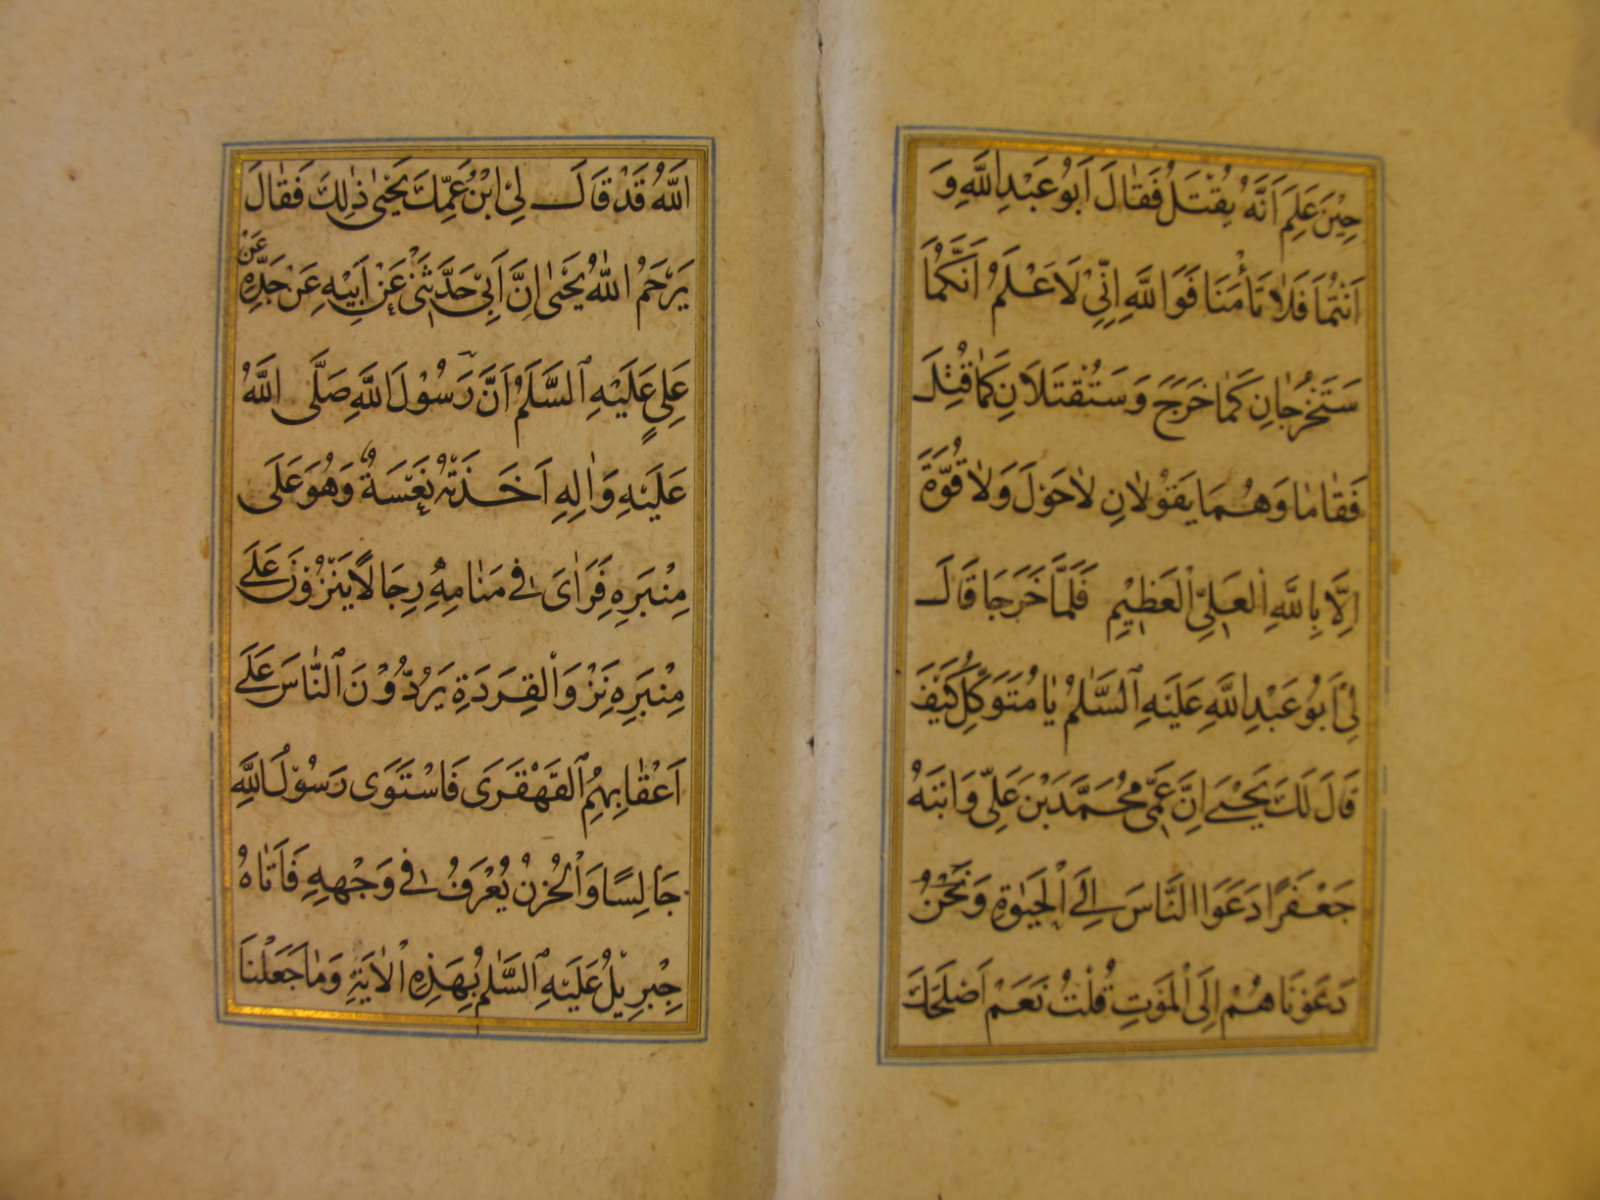 حِيْنَ عَلِمَ اَنَّهُ يُقْتَلُ فَقٰالَ اَبُو عَبْدِ اللَّهِ وَ
اَنْتُمٰا فَلاٰ تَأْمَنَا فَوَاللَّهِ اِنِّيْ لَاَعْلَمُ اَنَّكُمٰا
سَتَخْرُجٰانِ كَمٰا خَرَجَ وَسَتُقْتَلاٰنِ كَمٰا قُتِلَ
فَقٰامٰا وَهُمٰا يَقُوْلاٰنِ لاٰحَوْلَ وَلاٰ قُوَّةَ
اِلَّا بِاللَّهِ الْعَلِيِّ الْعَظِيْمِ فَلَمَّا خَرَجَا قَالَ
لِيْ اَبُو عَبْدِ اللَّهِ عَلَيْهِ السَّلٰمُ يٰا مُتَوَكِّلُ كَيْفَ
قٰالَ لَكَ يَحْيٰى اِنَّ عَمِّيْ مُحَمَّدَ بْنَ عَلِيٍّ وَابْنَهُ
جَعْفَرًا دَعَوَا النَّاسَ اِلَى الْحَيٰوةِ وَنَحْنُ
دَعَوْنَا هُمْ اِلَى الْمَوْتِ قُلْتُ نَعَمْ اَصْلَحَكَ
اللَّهُ قَدْ قَالَ لِيْ ابْنُ عَمِّكَ يَحْيٰى ذٰلِكَ فَقٰالَ
يَرْحَمُ اللّٰهُ يَحْيٰى اِنَّ اَبِيْ حَدَّثَنِيْ عَنْ اَبِيْهِ عَنْ جَدِّهِ عَنْ
عَلِيٍّ عَلَيْهِ السَّلَمُ اَنَّ رَسُوْلَ اللَّهِ صَلَّى اللَّهُ
عَلَيْهِ وَاٰلِهِ اَخَذَتْهُ نَعْسَةٌ وَهُوَ عَلَى
مِنْبَرِهِ فَرَاٰى فِي مَنٰامِهِ رِجَالًا يَنْزُوْنَ عَلَى
مِنْبَرِهِ نَزْوَ الْقِرَدَةِ يَرُدُّوْنَ النّٰاسَ عَلَى
اَعْقٰابِهِمُ الْقَهْقَرَى فَاسْتَوَى رَسُوْلُ اللَّهِ
جَالِسًا وَالْحُزْنُ يُعْرَفُ فِي وَجْهِهِ فَاَتٰاهُ
جِبْرِيْلُ عَلَيْهِ السَّلٰمُ بِهَذِهِ الْاٰيَةِ وَمٰا جَعَلْنَا